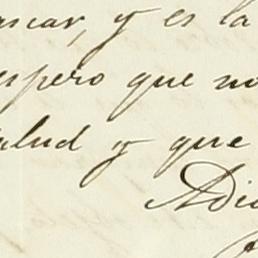 ascar, y es la
espero que no
alud y que
Adi